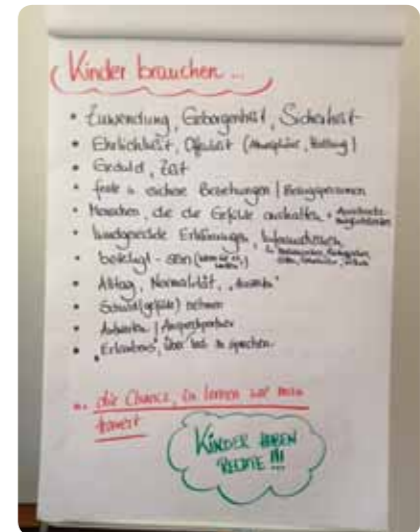 Kinder brauchen ...
• Zuwendung, Geborgenheit, Sicherheit
• Ehrlichkeit, Offenheit (Atmosphäre, Haltung)
• Geduld, Zeit
• feste u. sichere Beziehungen / Bezugspersonen
• Menschen, die die Gefühle aushalten +
• kindgerechte Erklärungen, Informationen
• beteiligt-sein (
• Alltag, Normalität,
• Schuld(gefühle) nehmen
• Antworten / Ansprechpartner
• "Erlaubnis", über zu sprechen
... die Chance, zu lernen wie man
trauert
KINDER HABEN
RECHTE !!!